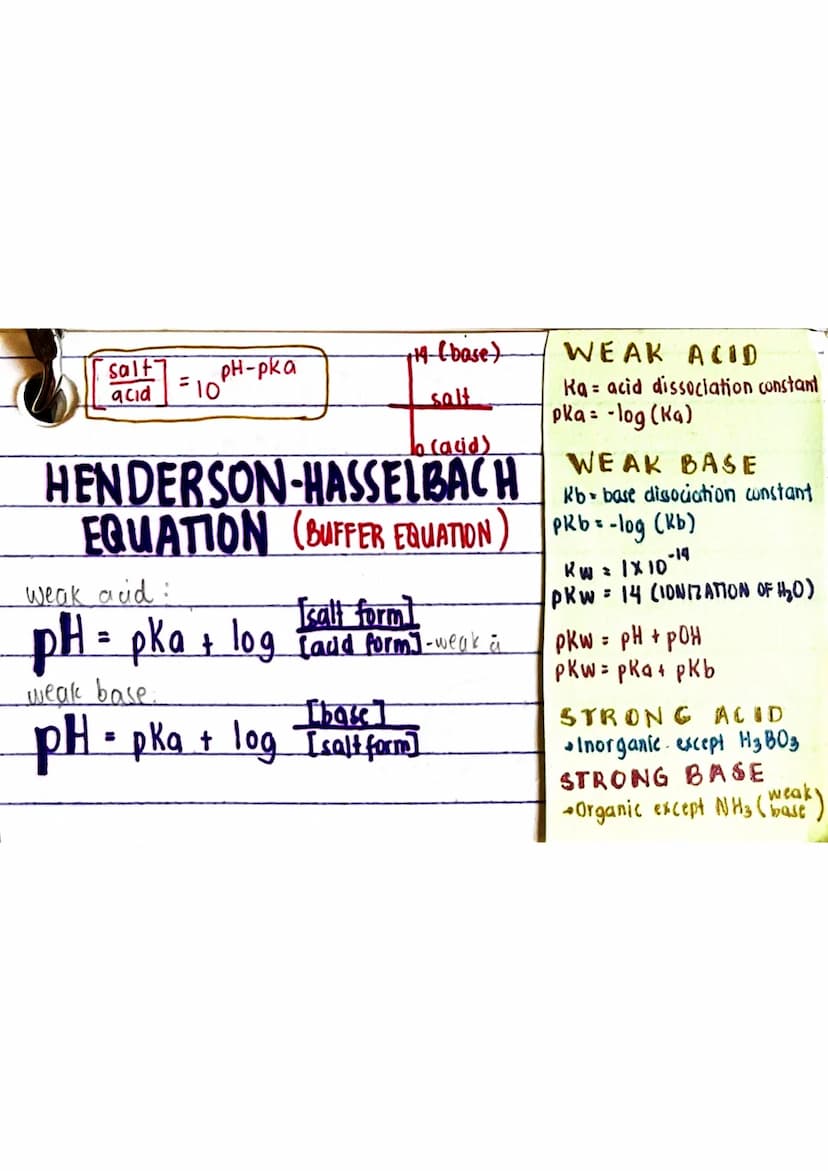 [salt/acid] = 10^pH-pKa
14 (base)
salt
0 (acid)
HENDERSON-HASSELBACH
EQUATION (BUFFER EQUATION)
weak acid:
pH = pKa + log [salt form]/[acid form] - weak a
weak base:
pH = pKa + log [base]/[salt form]
WEAK ACID
Ka = acid dissociation constant
pKa = -log (Ka)
WEAK BASE
Kb = base dissociation constant
pKb = -log (Kb)
Kw = 1 X 10^-14
pKw = 14 (IONIZATION OF H2O)
pKw = pH + pOH
pKw = pKa + pKb
STRONG ACID
→Inorganic except H3BO3
STRONG BASE
→Organic except NH3 (weak base)